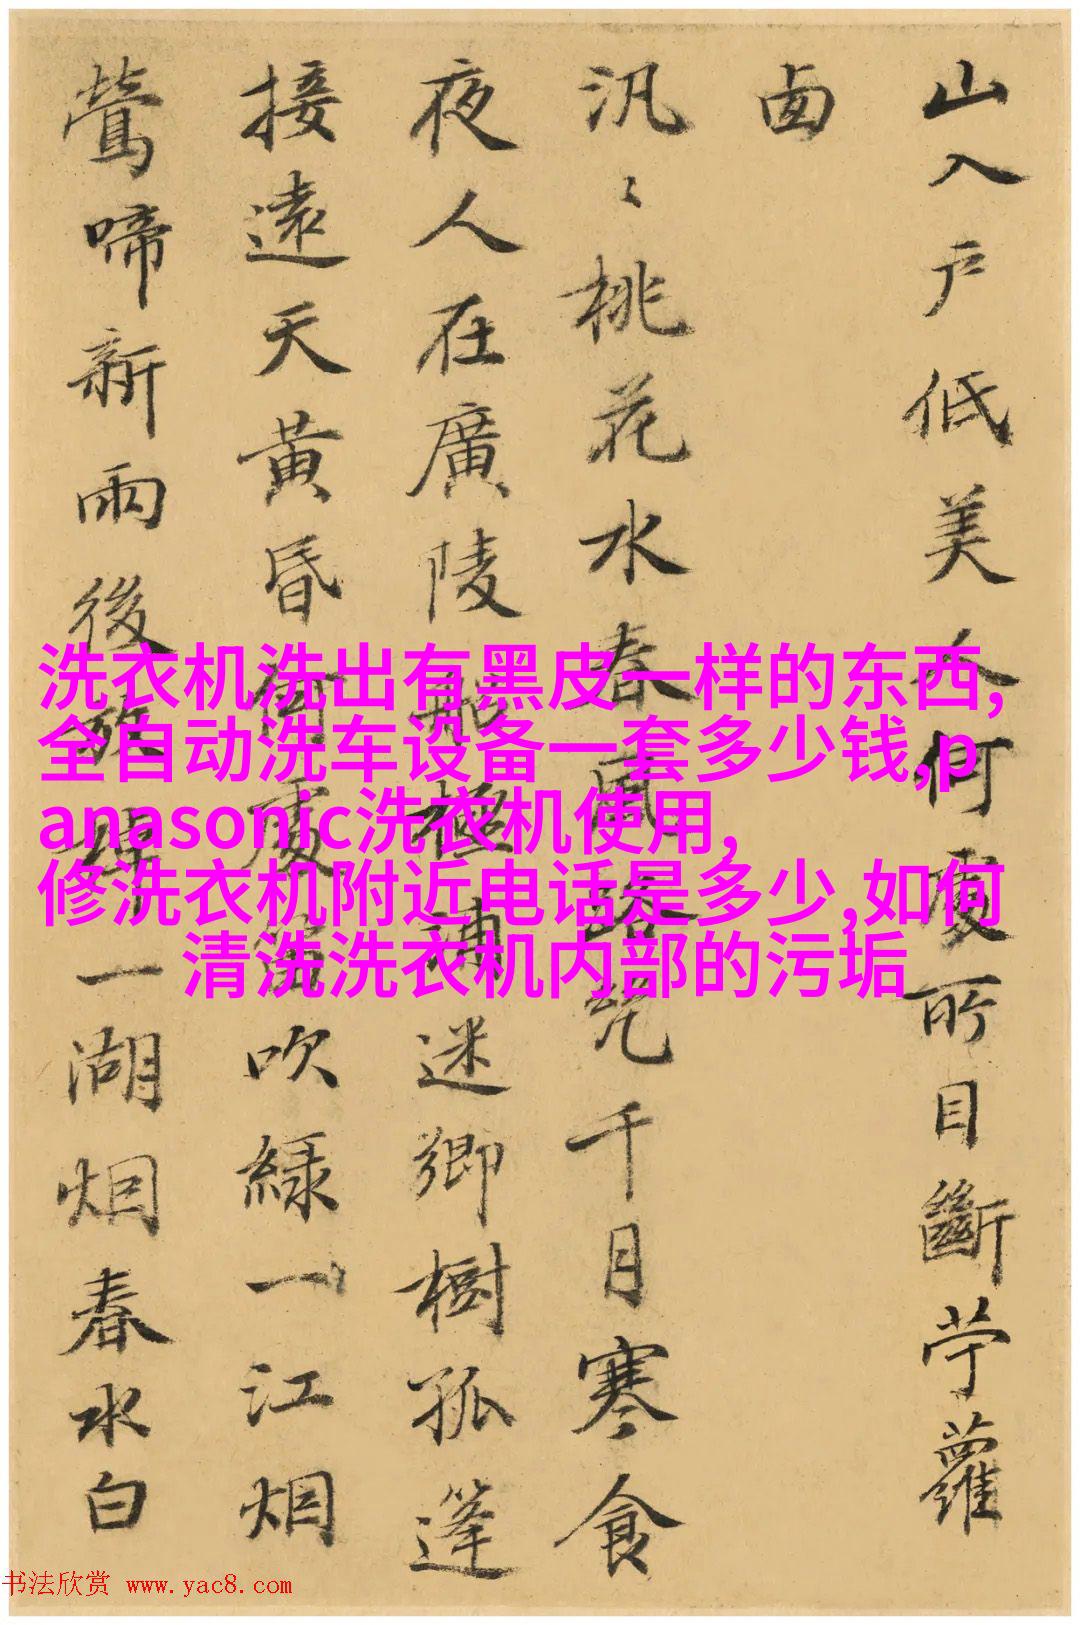 山入户低美人何處所目斷苧蘿
卥
汎〻桃花水春風路幾千月寒食
夜人在廣陵船極浦迷鄉樹孤篷
接遠天黄昏何處笛吹綠一江烟
鶯啼新雨後 一湖烟春水白
洗衣机洗出有黑皮一样的东西,
全自动洗车设备一套多少钱,p
anasonic洗衣机使用,
修洗衣机附近电话是多少,如何
清洗洗衣机内部的污垢
书法欣赏 www.yac8.com